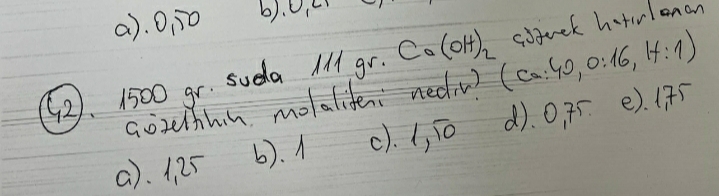 a). 0,50 b). 0,21
42. 1500 gr. suda 111 gr. Ca(OH)2 çözerek hazırlanan
çözeltinin molalitesi nedir? (Ca:40, O:16, H:1)
a). 1,25 b). 1 c). 1,50 d). 0,75 e). 1,75